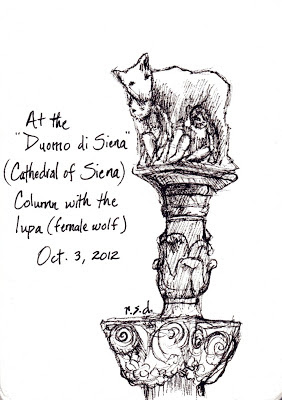 At the
"Duomo di Siena"
(Cathedral of Siena)
Column with the
lupa (female wolf)
Oct. 3, 2012
r.s.d.